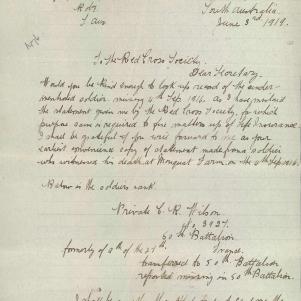 South Australia
June 3rd 1919.
To The Red Cross Society.
Dear Secretary.
Would you be kind enough to look up record of the under
mentioned soldier missing 4th Sep. 1916. As I have mislaid
the statement given me by the Red Cross Society, for which
purpose same is required to fix matters up of Life Insurance.
I shall be grateful if you will forward to me at your
earliest convenience copy of statement made from a soldier
who witnessed his death at Mouquet Farm on the 4th Sep. 1916.
Below is the soldiers rank.
Private C. R. Wilson
No 3927.
50th Battalion
France.
formerly of 9th of the 27th
transferred to 50th Battalion
reported missing in 50th Battalion.